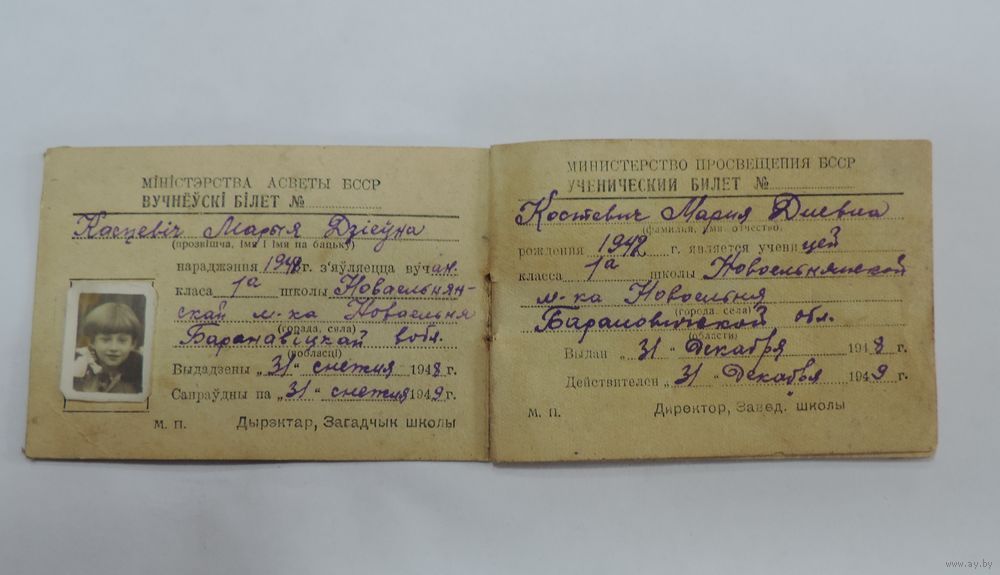 МІНІСТЭРСТВА АСВЕТЫ БССР
ВУЧНЁЎСКІ БІЛЕТ №
Касцевіч Марыя Дзіеўна
(прозвішча, імя і імя па бацьку)
нараджэння 1942 г. з'яўляецца вучан.
класа 1а школы Новаельнян-
скай м-ка Новаельня
(горада, села)
Баранавіцкай вобл.
(вобласці)
Выдадзены „31" снежня 1948 г.
Сапраўдны па „31" снежня 1949 г.
М. П. Дырэктар, Загадчык школы
МИНИСТЕРСТВО ПРОСВЕЩЕНИЯ БССР
УЧЕНИЧЕСКИЙ БИЛЕТ №
Костевич Мария Диевна
(фамилия, имя, отчество)
рождения 1942 г. являетсяученицей
класса 1а школы Новоельнянской
м-ка Новоельня
(города, села)
Барановичской обл.
(области)
Выдан „31" Декабря 1948 г.
Действителен „31" Декабря 1949 г.
М. П. Директор, Завед. школы
www.ay.by